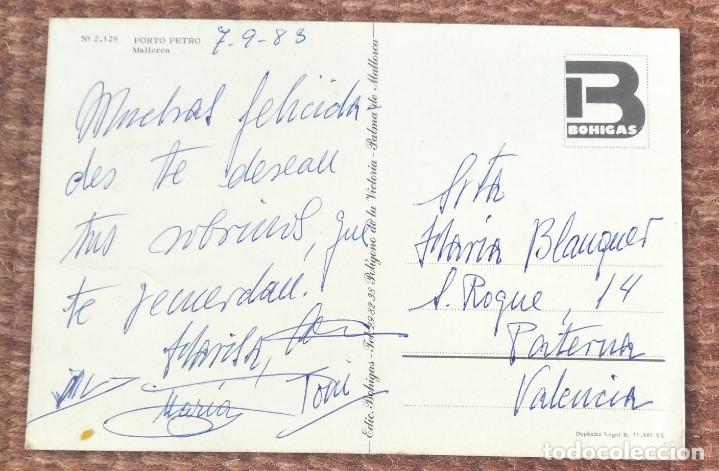 Nº 2.129 PORTO PETRO
Mallorca
7-9-83
Muchas felicida-
des te desean
tus sobrinos, que
te recuerdan.
Marisa,
María Toni
Edic. Bohigas - Tel. 29 82 38 Polígono de la Victoria - Palma de Mallorca
B
BOHIGAS
Srta
María Blanquer
S. Roque, 14
Paterna
Valencia
Depósito Legal B. 11.681 XX
todocoleccion
todocoleccion.net